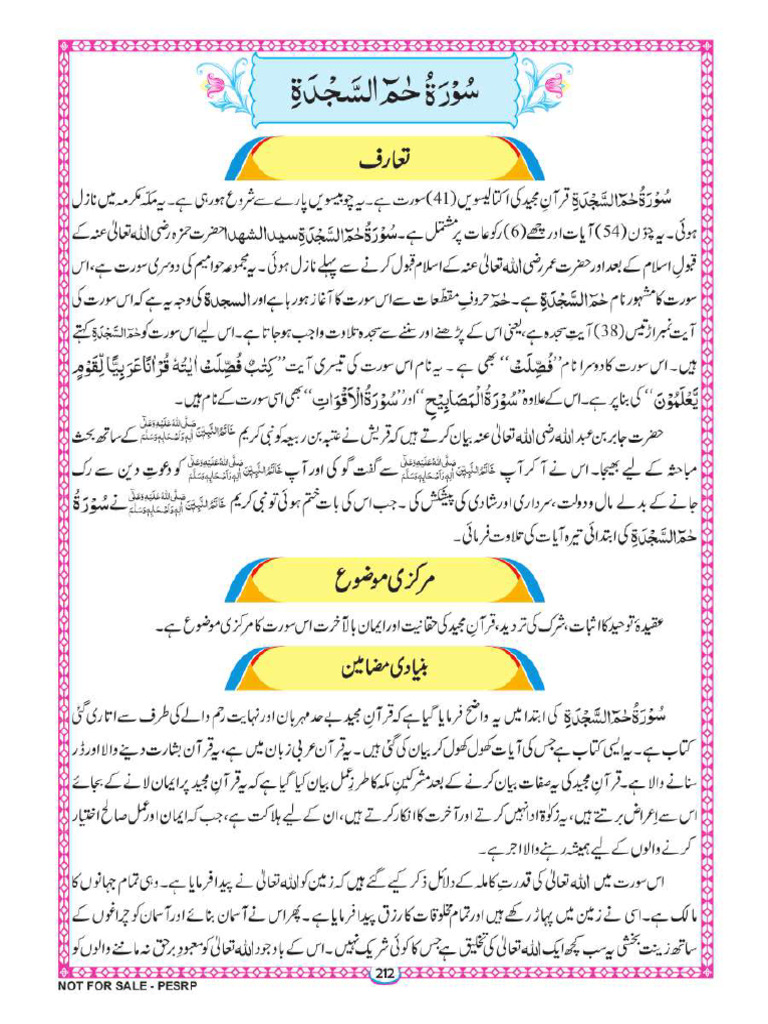 سُوْرَۃُ حٰمٓ السَّجْدَۃِ
تعارف
سُوْرَۃُ حٰمٓ السَّجْدَۃِ قرآنِ مجید کی اکتالیسویں (41) سورت ہے۔ یہ چوبیسویں پارے سے شروع ہورہی ہے۔ یہ مکّہ مکرمہ میں نازل
ہوئی۔ یہ چوّن (54) آیات اور چھے (6) رکوعات پر مشتمل ہے۔ سُوْرَۃُ حٰمٓ السَّجْدَۃِ سیدالشھدا حضرت حمزہ رضی اللہ تعالیٰ عنہ کے
قبولِ اسلام کے بعد اور حضرت عمر رضی اللہ تعالیٰ عنہ کے اسلام قبول کرنے سے پہلے نازل ہوئی۔ یہ مجموعہ حوامیم کی دوسری سورت ہے، اس
سورت کا مشہور نام حٰمٓ السَّجْدَۃِ ہے۔ حٰمٓ حروفِ مقطّعات سے اس سورت کا آغاز ہورہا ہے اور السجدۃ کی وجہ یہ ہے کہ اس سورت کی
آیت نمبر اڑتیس (38) آیتِ سجدہ ہے، یعنی اس کے پڑھنے اور سننے سے سجدہ تلاوت واجب ہوجاتا ہے۔ اس لیے اس سورت کو حٰمٓ السَّجْدَۃِ کہتے
ہیں۔ اس سورت کا دوسرا نام ”فُصِّلَتْ“ بھی ہے ۔ یہ نام اس سورت کی تیسری آیت ”کِتٰبٌ فُصِّلَتْ اٰیٰتُہٗ قُرْاٰنًا عَرَبِیًّا لِّقَوْمٍ
یَّعْلَمُوْنَ“ کی بنا پر ہے۔ اس کے علاوہ ”سُوْرَۃُ الْمَصَابِیْحِ“ اور ”سُوْرَۃُ الْاَقْوَاتِ“ بھی اسی سورت کے نام ہیں۔
حضرت جابر بن عبداللہ رضی اللہ تعالیٰ عنہ بیان کرتے ہیں کہ قریش نے عتبہ بن ربیعہ کو نبی کریم خَاتَمُ النَّبِیّٖنَ صَلَّی اللہُ عَلَیْہِ وَعَلٰٓی اٰلِہٖ وَاَصْحَابِہٖ وَسَلَّمَ کے ساتھ بحث
مباحثہ کے لیے بھیجا۔ اس نے آ کر آپ خَاتَمُ النَّبِیّٖنَ صَلَّی اللہُ عَلَیْہِ وَعَلٰٓی اٰلِہٖ وَاَصْحَابِہٖ وَسَلَّمَ سے گفت گو کی اور آپ خَاتَمُ النَّبِیّٖنَ صَلَّی اللہُ عَلَیْہِ وَعَلٰٓی اٰلِہٖ وَاَصْحَابِہٖ وَسَلَّمَ کو دعوتِ دین سے رک
جانے کے بدلے مال و دولت، سرداری اور شادی کی پیشکش کی۔ جب اس کی بات ختم ہوئی تو نبی کریم خَاتَمُ النَّبِیّٖنَ صَلَّی اللہُ عَلَیْہِ وَعَلٰٓی اٰلِہٖ وَاَصْحَابِہٖ وَسَلَّمَ نے سُوْرَۃُ
حٰمٓ السَّجْدَۃِ کی ابتدائی تیرہ آیات کی تلاوت فرمائی۔
مرکزی موضوع
عقیدۂ توحید کا اثبات، شرک کی تردید، قرآنِ مجید کی حقانیت اور ایمان بالآخرت اس سورت کا مرکزی موضوع ہے۔
بنیادی مضامین
سُوْرَۃُ حٰمٓ السَّجْدَۃِ کی ابتدا میں یہ واضح فرمایا گیا ہے کہ قرآنِ مجید بے حد مہربان اور نہایت رحم والے کی طرف سے اتاری گئی
کتاب ہے۔ یہ ایسی کتاب ہے جس کی آیات کھول کھول کر بیان کی گئی ہیں۔ یہ قرآن عربی زبان میں ہے، یہ قرآن بشارت دینے والا اور ڈر
سنانے والا ہے۔ قرآنِ مجید کی یہ صفات بیان کرنے کے بعد مشرکینِ مکہ کا طرزِ عمل بیان کیا گیا ہے کہ یہ قرآنِ مجید پر ایمان لانے کے بجائے
اس سے اِعراض برتتے ہیں، یہ زکوٰۃ ادا نہیں کرتے اور آخرت کا انکار کرتے ہیں، ان کے لیے ہلاکت ہے، جب کہ ایمان اور عملِ صالح اختیار
کرنے والوں کے لیے ہمیشہ رہنے والا اجر ہے۔
اس سورت میں اللہ تعالیٰ کی قدرتِ کاملہ کے دلائل ذکر کیے گئے ہیں کہ زمین کو اللہ تعالیٰ نے پیدا فرمایا ہے۔ وہی تمام جہانوں کا
مالک ہے۔ اسی نے زمین میں پہاڑ رکھے ہیں اور تمام مخلوقات کا رزق پیدا فرمایا ہے۔ پھر اس نے آسمان بنائے اور آسمان کو چراغوں کے
ساتھ زینت بخشی یہ سب کچھ ایک اللہ تعالیٰ کی تخلیق ہے جس کا کوئی شریک نہیں۔ اس کے باوجود اللہ تعالیٰ کو معبودِ برحق نہ ماننے والوں کو
212
NOT FOR SALE - PESRP